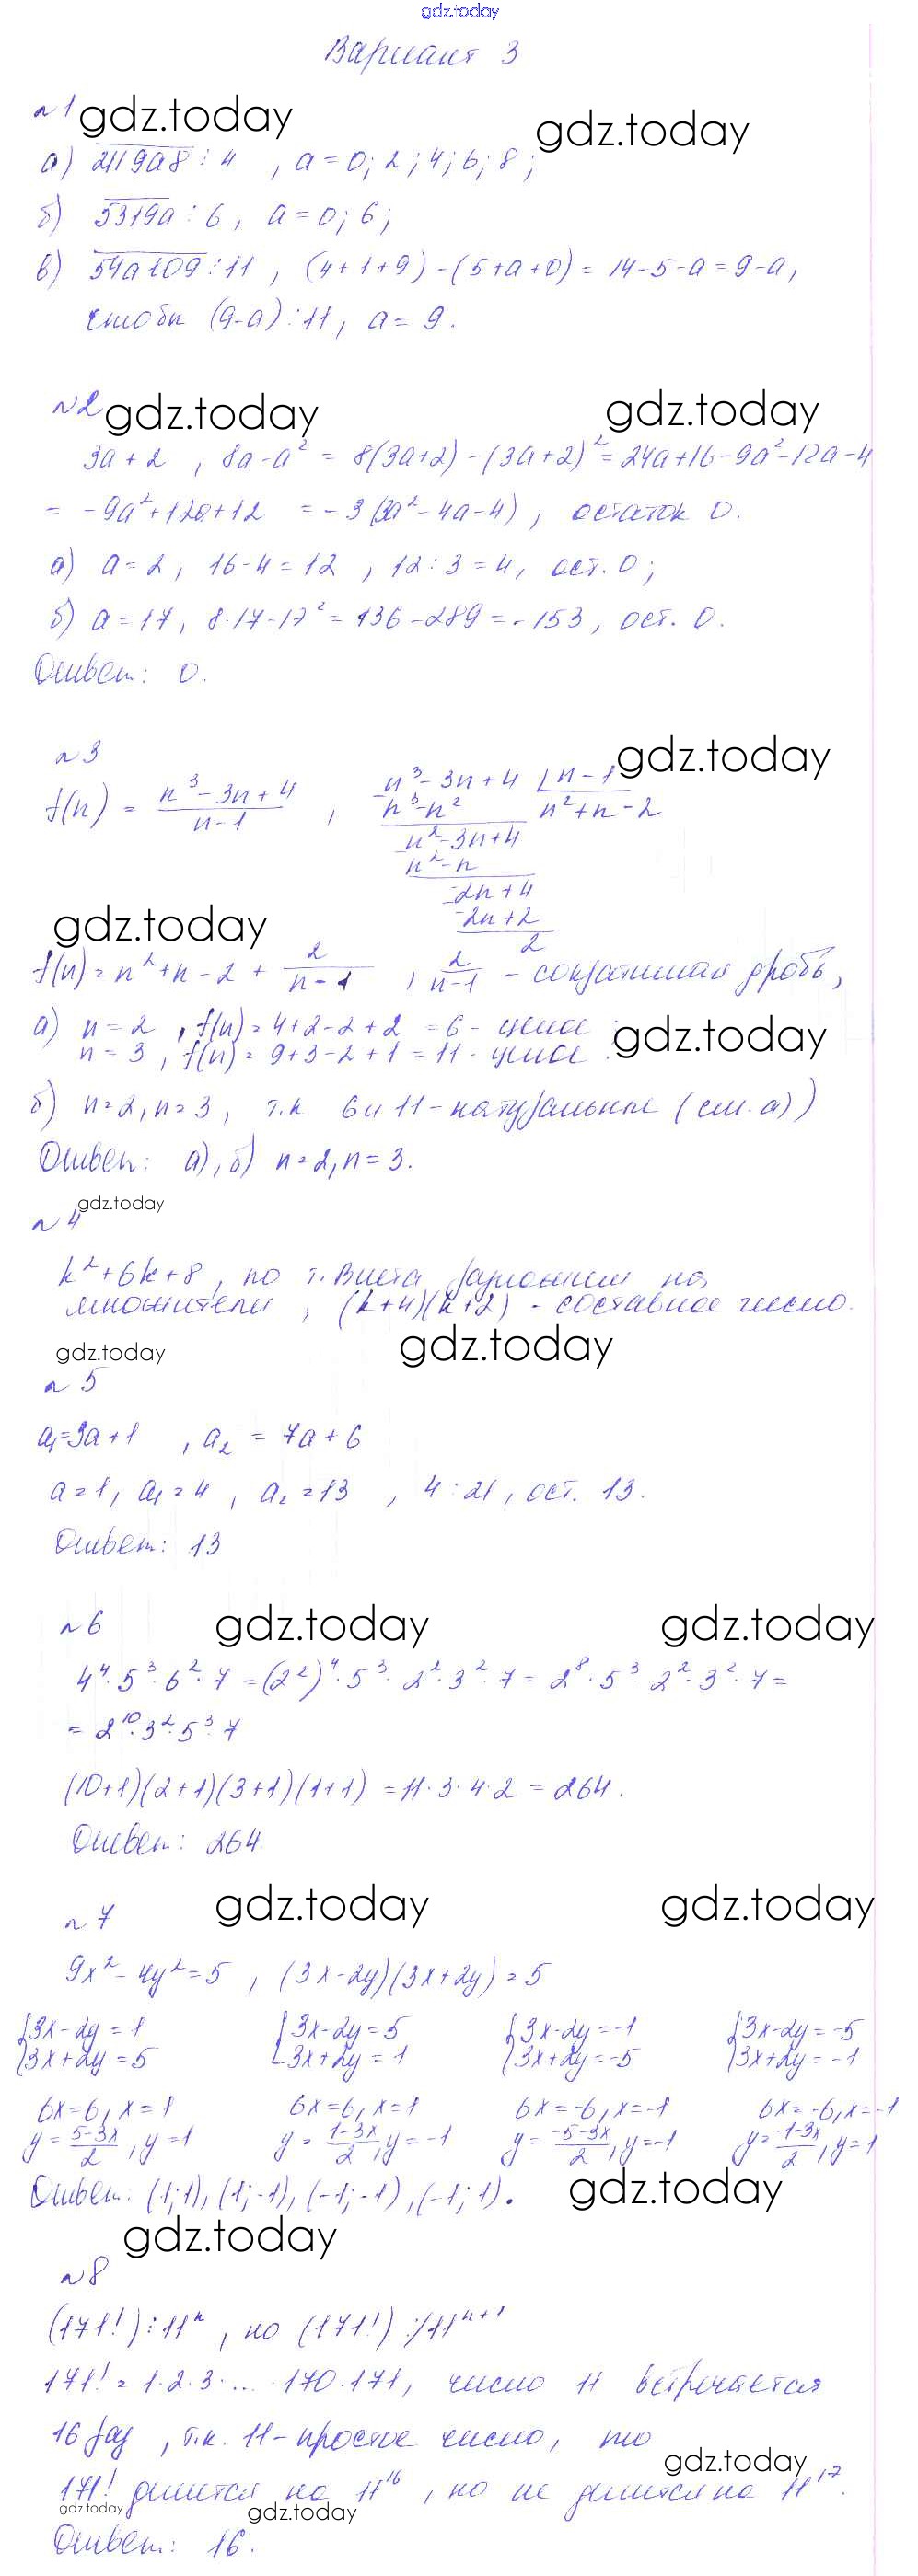 gdz.today
Вариант 3
№1 gdz.today gdz.today
а) 2119a8 ⋮ 4 , a = 0; 2; 4; 6; 8;
б) 5319a ⋮ 6, a = 0; 6;
в) 54a109 ⋮ 11 , (4+1+9) - (5+a+0) = 14-5-a = 9-a,
чтобы (9-a) ⋮ 11, a = 9.
№2 gdz.today gdz.today
3a + 2 , 8a - a² = 8(3a+2) - (3a+2)² = 24a+16-9a²-12a-4
= -9a²+12a+12 = -3(3a²-4a-4), остаток 0.
а) a = 2, 16-4 = 12 , 12:3 = 4, ост. 0;
б) a = 17, 8·17-17² = 136-289 = -153, ост. 0.
Ответ: 0.
№3 gdz.today
f(n) = (n³-3n+4)/(n-1) , n³-3n+4 | n-1
n³-n² n²+n-2
n²-3n+4
n²-n
-2n+4
-2n+2
2
gdz.today
f(n) = n²+n-2 + 2/(n-1) , 2/(n-1) - сократимая дробь,
а) n = 2 , f(n) = 4+2-2+2 = 6 - целое ; gdz.today
n = 3 , f(n) = 9+3-2+1 = 11 - целое .
б) n=2, n=3, т.к 6 и 11 - натуральные (см. а))
Ответ: а), б) n=2, n=3.
gdz.today
№4
k²+6k+8, по т. Виета разложим на
множители , (k+4)(k+2) - составное число.
gdz.today gdz.today
№5
a₁=3a+1 , a₂ = 7a+6
a=1, a₁=4 , a₂=13 , 4:21, ост. 13.
Ответ: 13
№6 gdz.today gdz.today
4⁴·5³·6²·7 = (2²)⁴·5³·2²·3²·7 = 2⁸·5³·2²·3²·7 =
= 2¹⁰·3²·5³·7
(10+1)(2+1)(3+1)(1+1) = 11·3·4·2 = 264.
Ответ: 264
№7 gdz.today gdz.today
9x²-4y²=5 , (3x-2y)(3x+2y)=5
{3x-2y=1 {3x-2y=5 {3x-2y=-1 {3x-2y=-5
{3x+2y=5 {3x+2y=1 {3x+2y=-5 {3x+2y=-1
6x=6, x=1 6x=6, x=1 6x=-6, x=-1 6x=-6, x=-1
y=(5-3x)/2, y=1 y=(1-3x)/2, y=-1 y=(-5-3x)/2, y=-1 y=(-1-3x)/2, y=1
Ответ: (1;1), (1;-1), (-1;-1), (-1;1). gdz.today
gdz.today
№8
(171!) ⋮ 11ⁿ , но (171!) ⋮̸ 11ⁿ⁺¹
171! = 1·2·3·...·170·171, число 11 встречается
16 раз , т.к. 11 - простое число, то
gdz.today
171! делится на 11¹⁶ , но не делится на 11¹⁷.
gdz.today gdz.today
Ответ: 16.